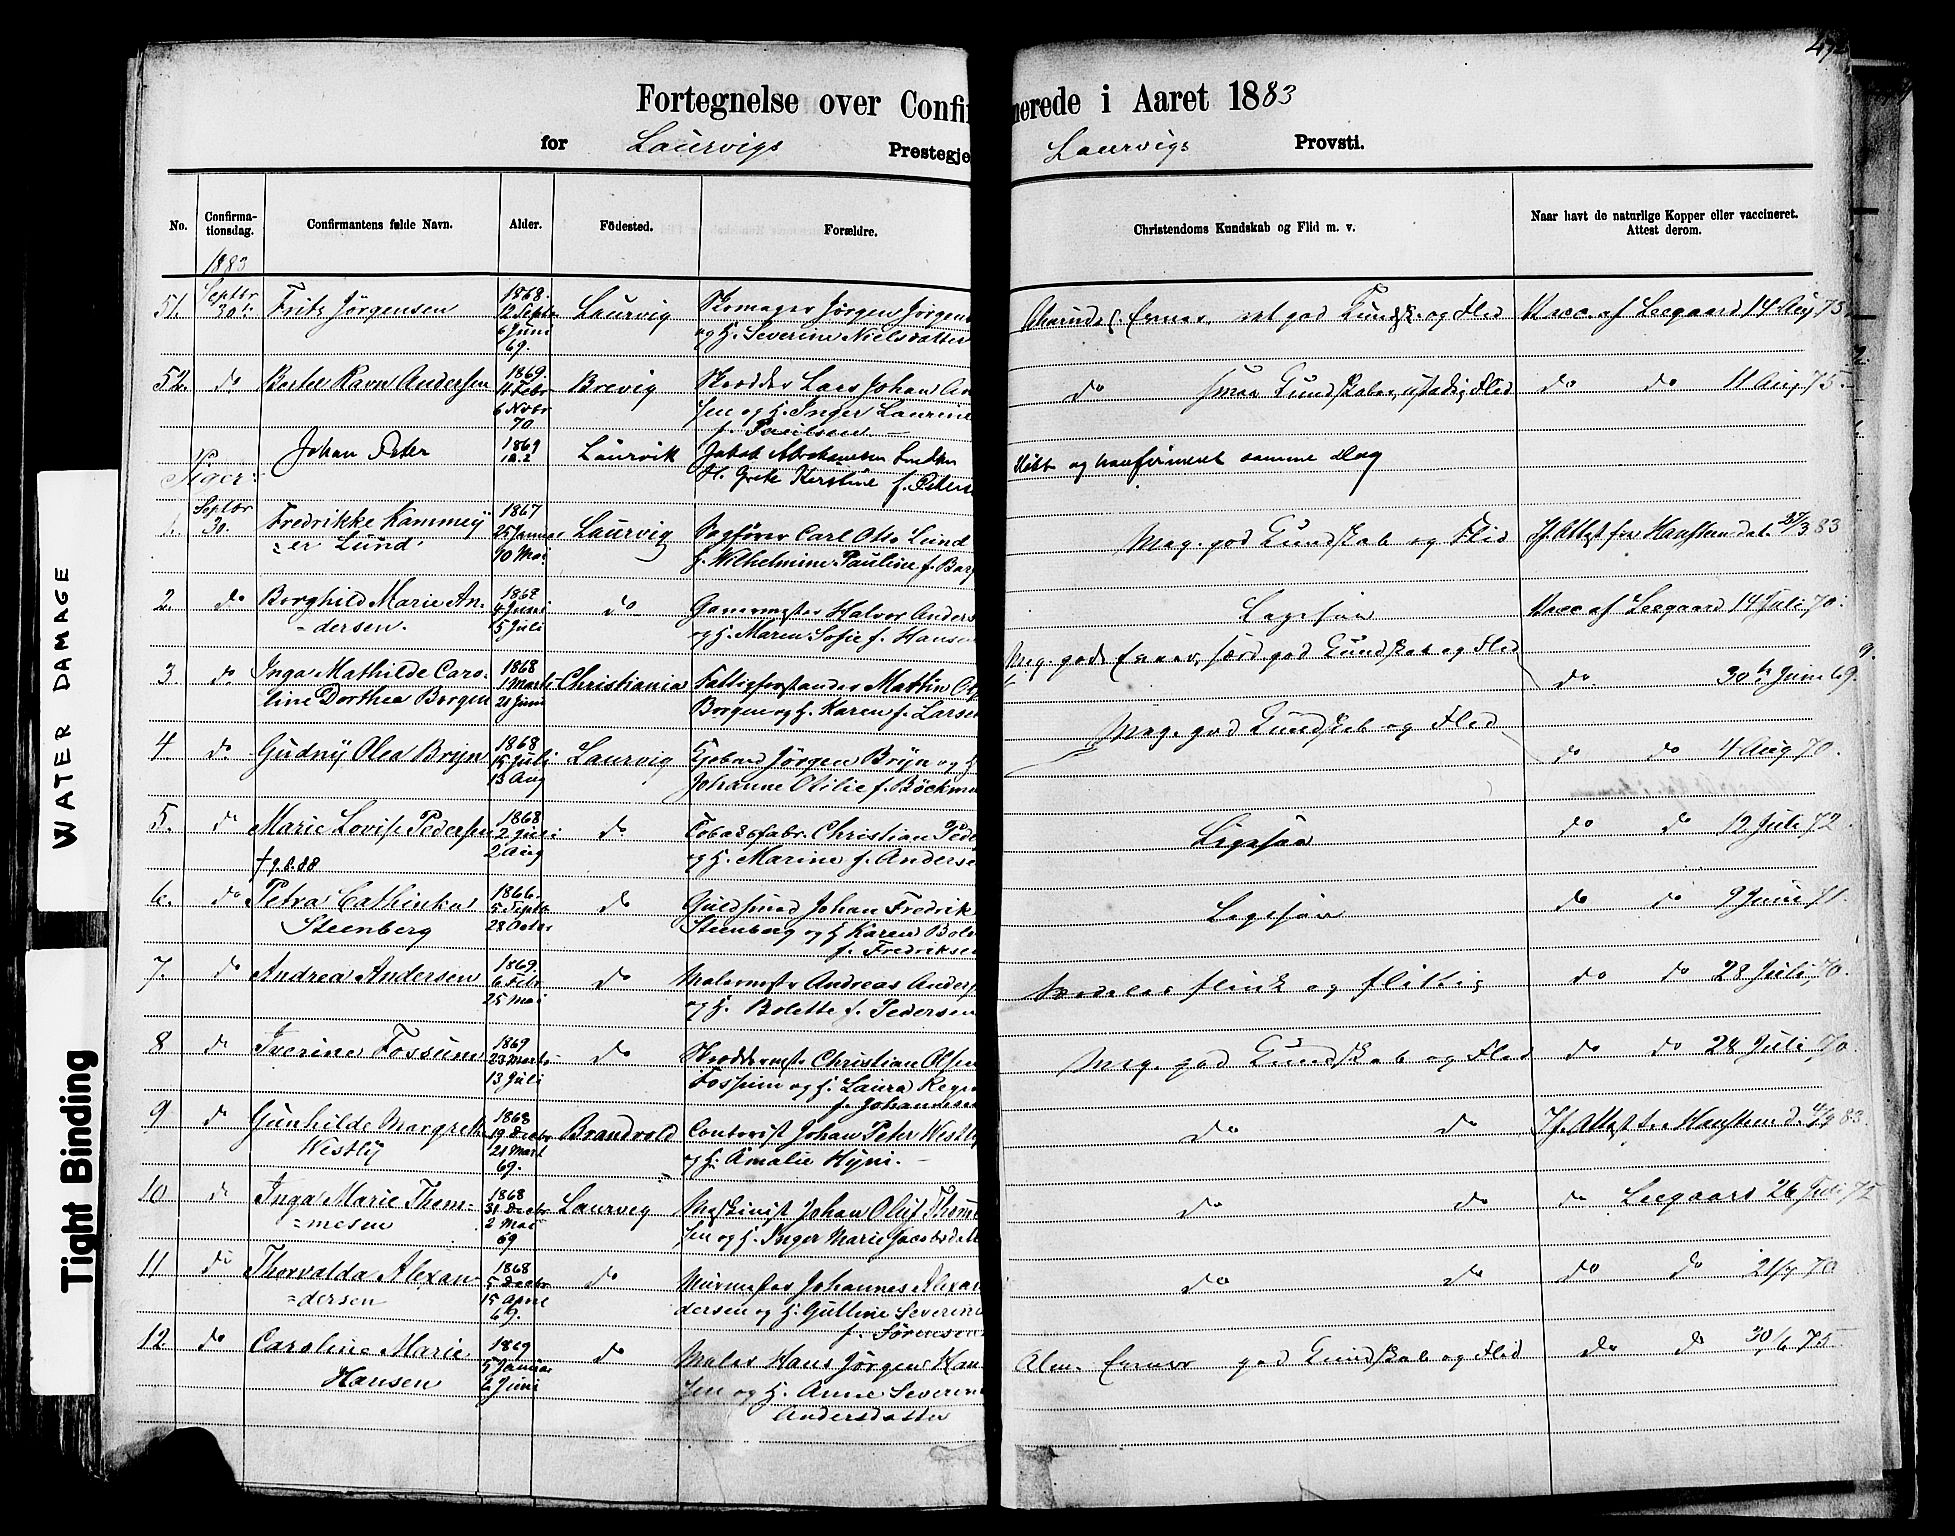 Fortegnelse over Confir
nerede i Aaret 1883
for Laurvigs Prestegje
Laurvigs Provsti.
No. Confirma-tionsdag. Confirmantens fulde Navn. Alder. Födested. Forældre. Christendoms Kundskab og Flid m. v. Naar havt de naturlige Kopper eller vaccineret. Attest derom.
1883
51. Septbr 30te Fritz Jörgensen 1868. 12 Septbr 6 Juni 69. Laurvig Skomager Jörgen Jörgens
og H. Severine Nielsdatter
Evner, ret god Kundsk. og Flid Vacc. af Leegaard 14 Aug 73.
52. do Bertel Ravn Andersen 1869. 11 Febr 6 Novbr 70 Brevig Skrædder Lars Johan An
sen og H. Inger Laurine
f. Paulsen
do smaa Kundskaber, Flid do do 11 Aug 75.
Johan Peter 1869 12.2 Laurvik Jakob Abrahamsen
H. Grete Kerstine f. Peters
og konfirmeret samme Dag
Piger:
1. Septbr 30. Fredrikke Kammey
=er Lund 1867 25 Januar 10 Mai Laurvig Sagförer Carl Otto Lund
H. Wilhelmine Pauline f.
Meg. god Kundskab og Flid If. Attest fra 83
2. do Borghild Marie An-
=dersen. 1868 4 Juni 5 Juli do Garvermester Halvor Anders
og H. Maren Sofie f. Hansen
Ligesaa Vacc af Leegaard 14 Juli 70.
3 do Inga Mathilde Caro-
line Dorthea Borgen 1868 1 Marts 21 Juni Christiania Fattigforstander Martin
Borgen og H. Karen f. Larsen
Meg. gode Evner, særd. god Kundskab og Flid do 30te Juni 69.
4. do Gudny Olea Bryn 1868 15 Juli 13 Aug Laurvig Jörgen Bryn og H
Johanne Otilie f. Böckman
Meg. god Kundskab og Flid do do 4 Aug 70.
5. do Marie Lovise Pedersen 1868 2 Juli 2 Aug do Tobaksfabr. Christian Peder
og H. Marine f. Anderse
† 9.8.88
Ligesaa do do 12 Juli 72.
6. do Petra Cathinka
Steenberg 1866. 5 Septb 28 Octbr do Guldsmed Johan Fredrik
Steenberg og H Karen
f. Fredriksen
Ligesaa do do 9 Juni 71.
7. do Andrea Andersen 1869. 6 Febr 25 Mai do Malermestr Andreas Anders
og H. Bolette f. Pedersen
flink og flittig do do 28 Juli 70.
8 do Iverine Fossum 1869 23 Marts 13 Juli do Skræddermestr Christian Olsen
Fossum og H. Laura
f. Johannesen
Meg. god Kundskab og Flid do do 28 Juli 70.
9 do Gunhilde Margrete
Westly 1868 19 Decbr 21 Mart 69. Brandvold Contorist Johan Peter Westly
og H. Amalie Hyni.
do do If. Attest fra 83.
10 do Inga Marie Them-
=mesen 1868 31 Decbr 2 Mai 69 Laurvig Maskinist Johan Oluf Themm
sen og H. Inger Marie
do do do Leegaard 26 Juli 72
11 do Thorvalda Alexan-
=dersen 1868 5 Decbr 15 April 69. do Murmester Johannes Alexan
dersen og H. Gulline Severin
f. Sörensen
do do do do 21/7 70
12 do Caroline Marie
Hansen 1869 5 Januar 6 Juni do Maler Hans Jörgen Han
sen og H. Anne Severin
Andersdatter
Alm. Evner god Kundskab og Flid do do 30/6 75
WATER DAMAGE
Tight Binding